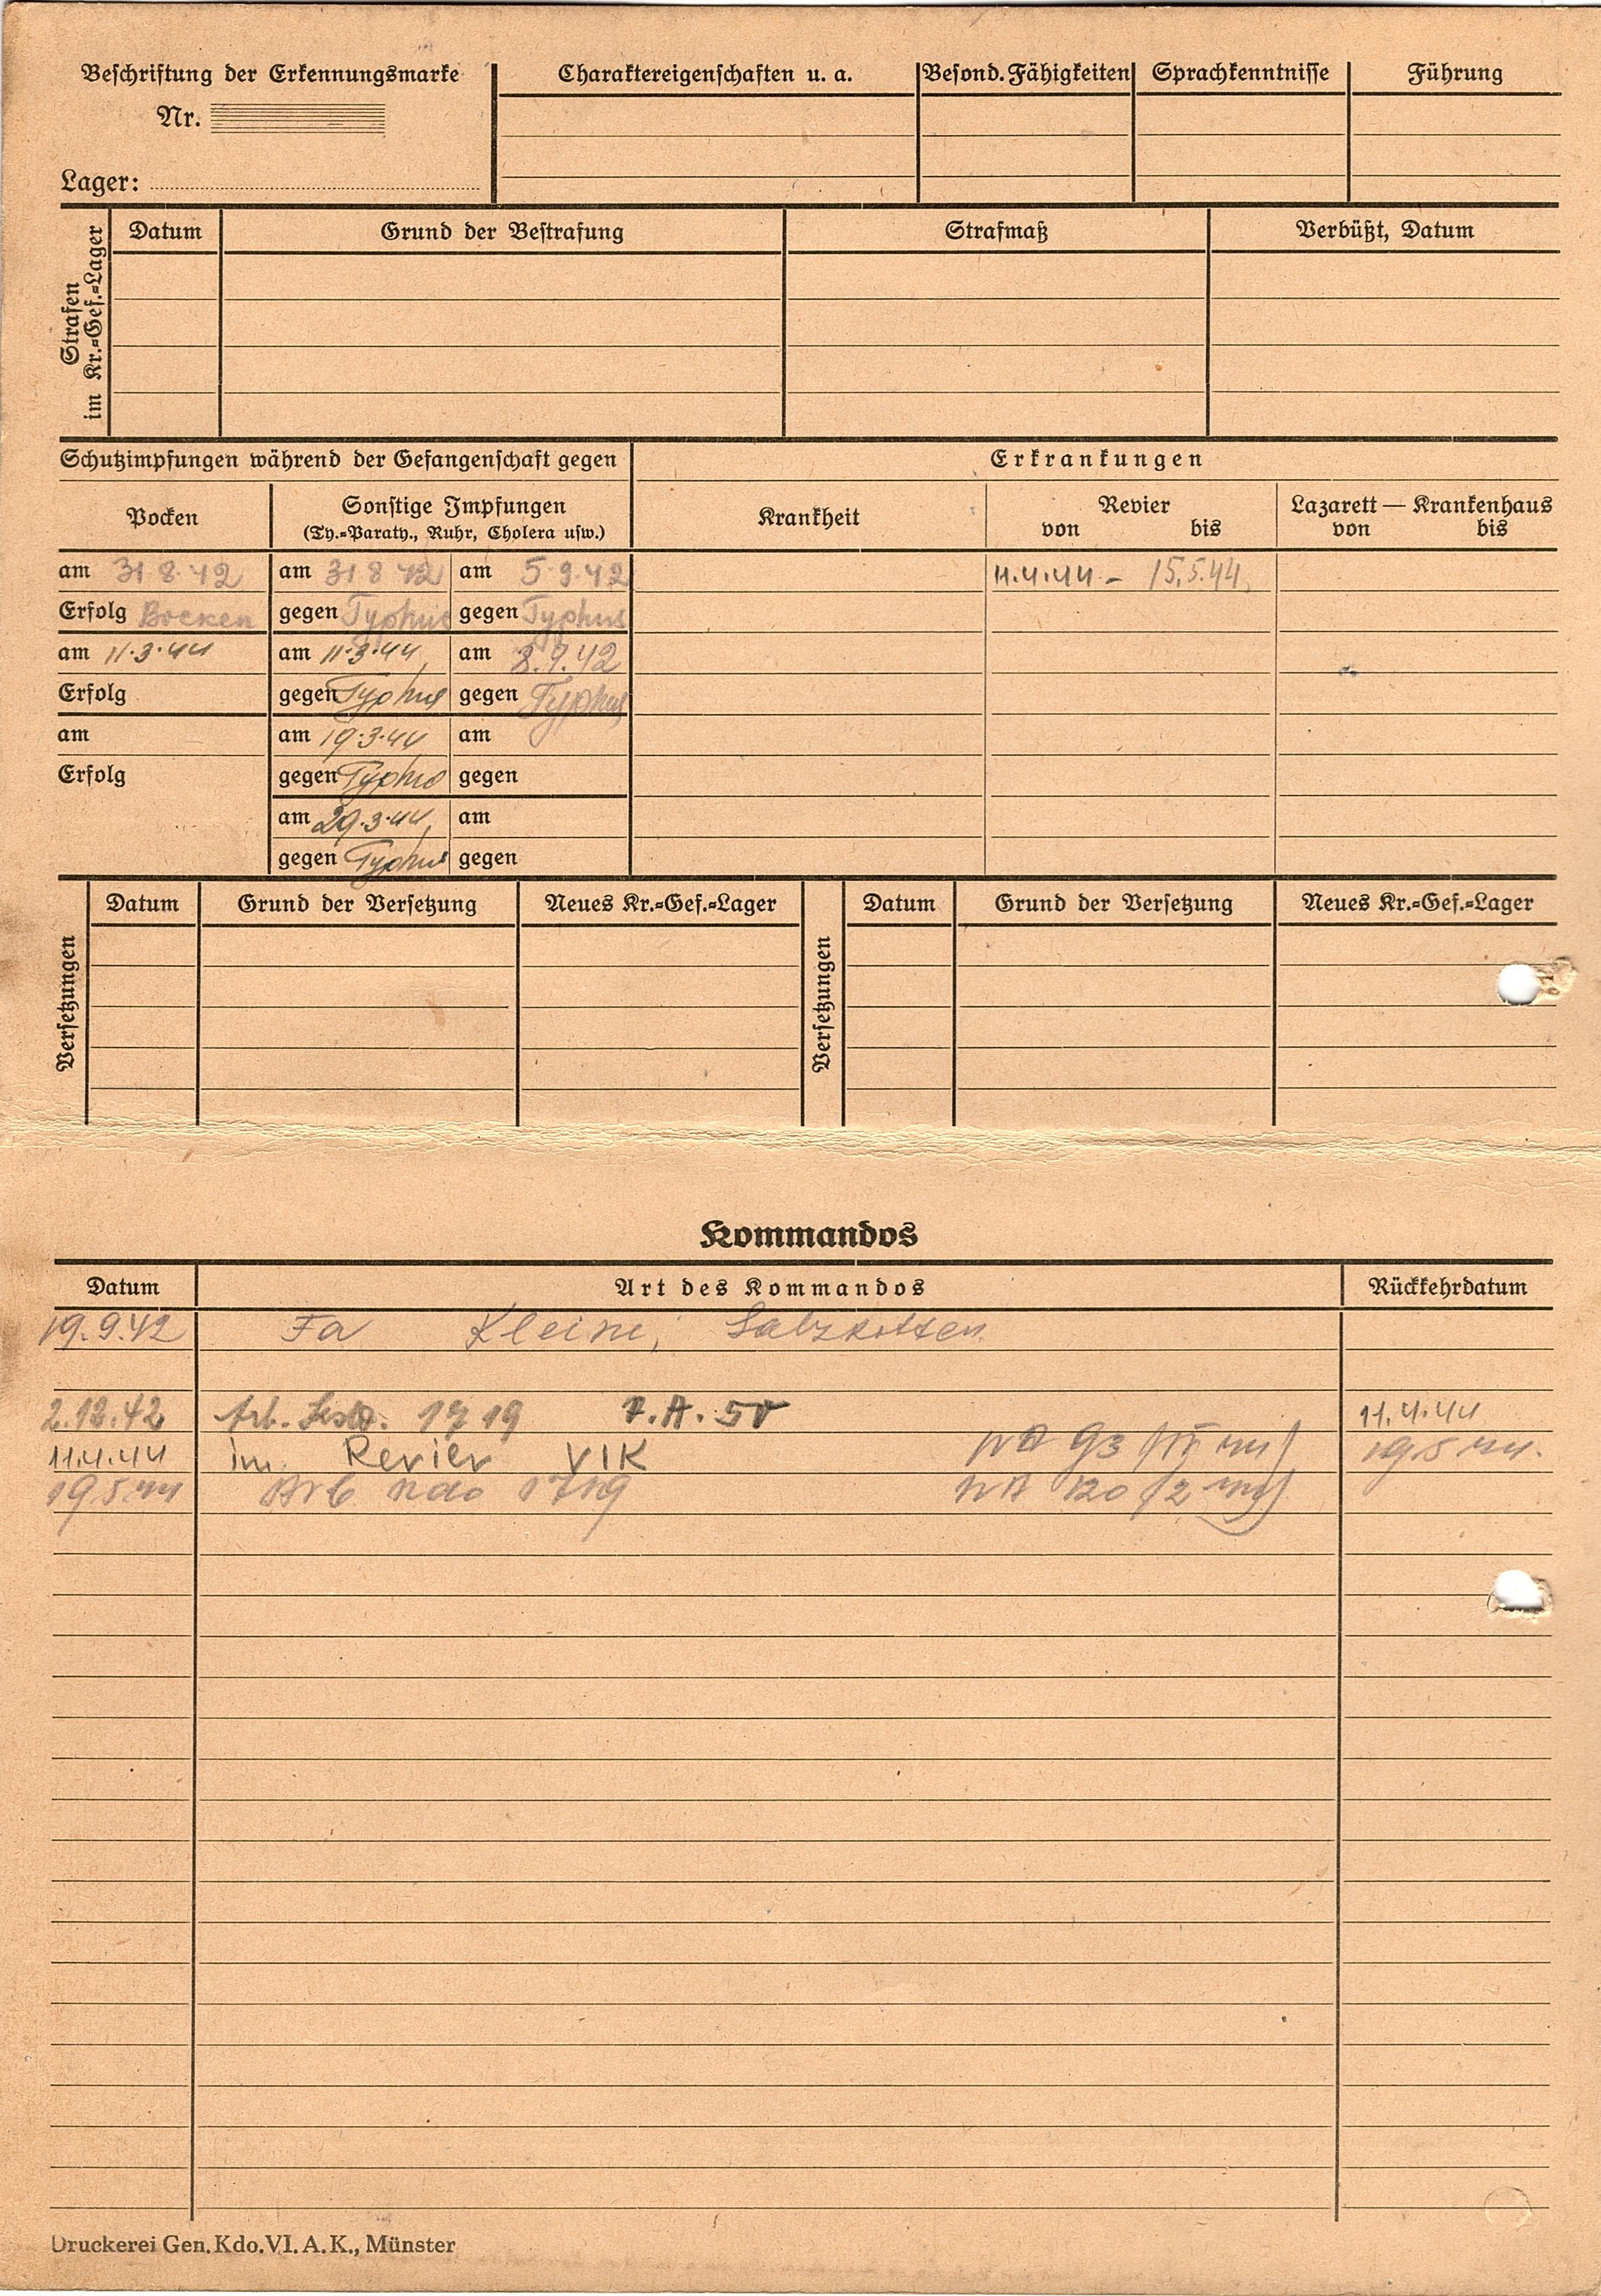 Beschriftung der Erkennungsmarke
Nr.
Lager:
Charaktereigenschaften u. a.
Besond. Fähigkeiten
Sprachkenntnisse
Führung
Strafen
im Kr.=Gef.=Lager
Datum
Grund der Bestrafung
Strafmaß
Verbüßt, Datum
Schutzimpfungen während der Gefangenschaft gegen
Erkrankungen
Pocken
Sonstige Impfungen
(Ty.=Paraty., Ruhr, Cholera usw.)
Krankheit
Revier
von bis
Lazarett — Krankenhaus
von bis
am 31 8. 42 am 31 8 42 am 5.9.42 11.4.44 - 15.5.44.
Erfolg Bocken gegen Typhus gegen Typhus
am 11.3.44 am 11.3.44 am 8.9.42
Erfolg gegen Typhus gegen Typhus
am am 19.3.44 am
Erfolg gegen Typhus gegen
am 29.3.44 am
gegen Typhus gegen
Versetzungen
Datum Grund der Versetzung Neues Kr.=Gef.=Lager
Versetzungen
Datum Grund der Versetzung Neues Kr.=Gef.=Lager
Kommandos
Datum Art des Kommandos Rückkehrdatum
19.9.42 Fa Kleine, Salzkotten
2.12.42 Arb. 1719 11.4.44
11.4.44 im Revier VIK 93 19.5.44.
19.5.44 Arb Kdo 1719 120
Druckerei Gen. Kdo. VI. A. K., Münster